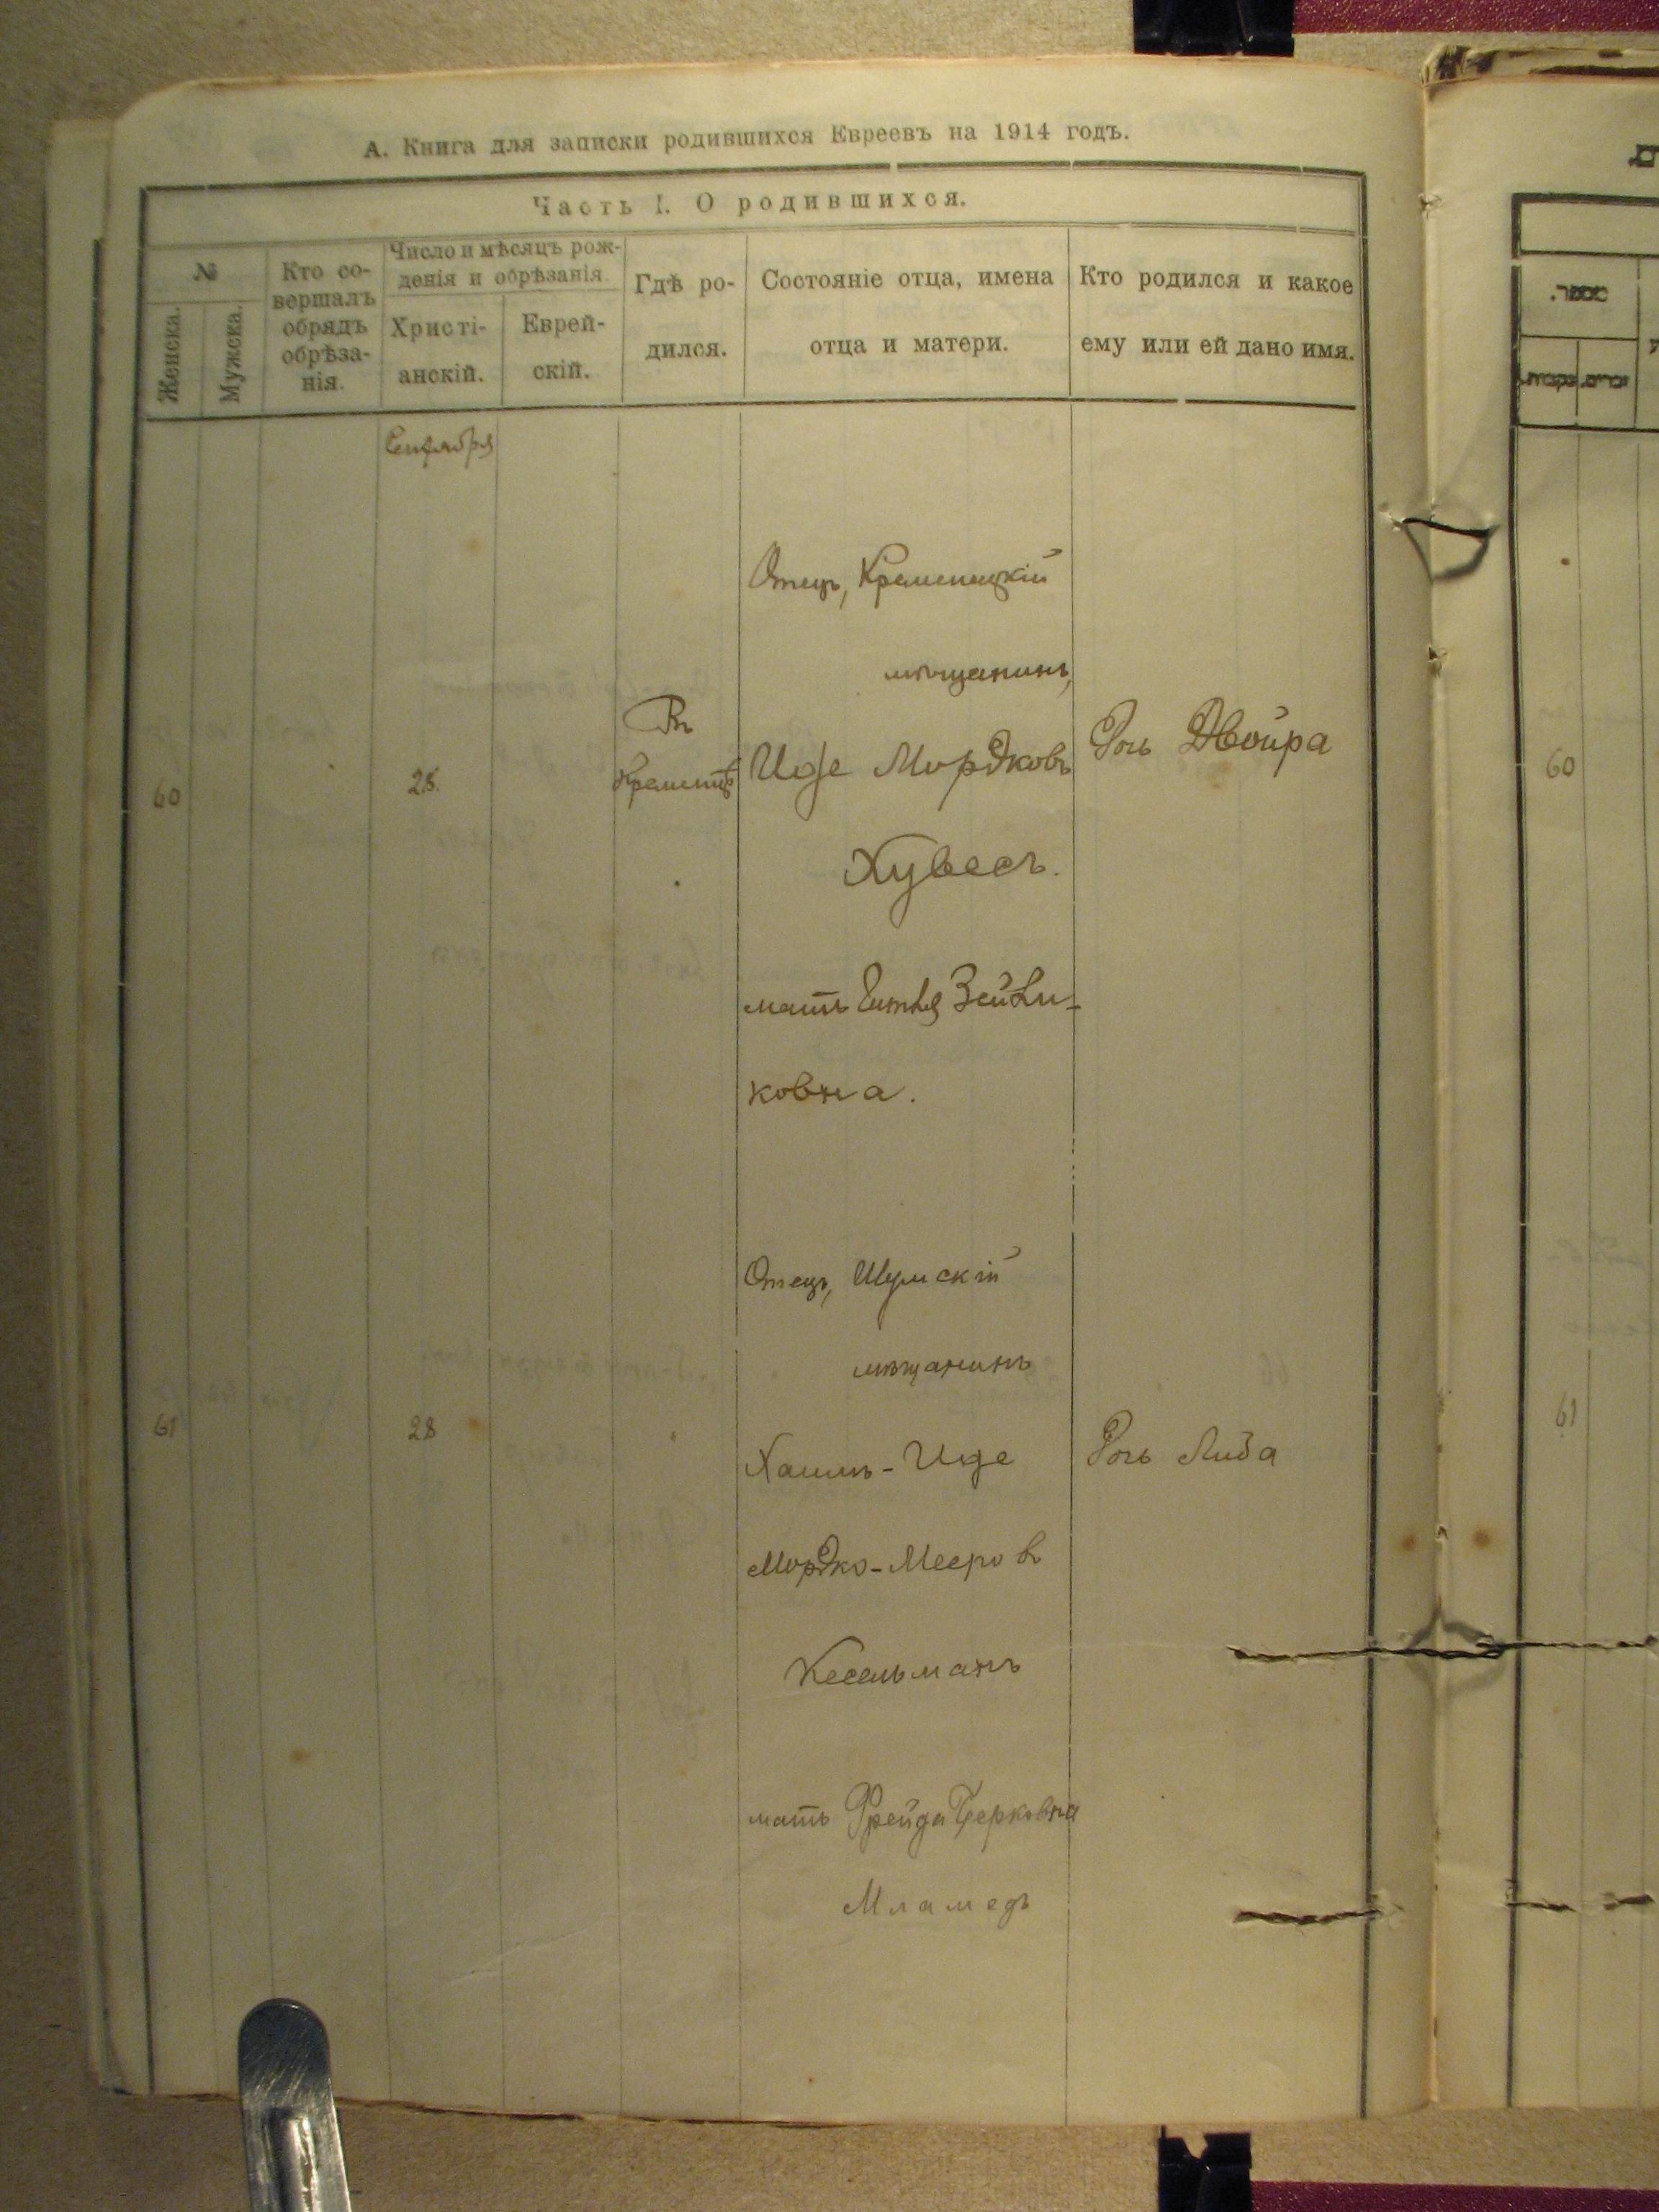 А. Книга для записки родившихся Евреевъ на 1914 годъ.
Часть I. О родившихся.
№
Женска.
Мужска.
Кто со-
вершалъ
обрядъ
обрѣза-
нія.
Число и мѣсяцъ рож-
денія и обрѣзанія.
Христі-
анскій.
Еврей-
скій.
Гдѣ ро-
дился.
Состояніе отца, имена
отца и матери.
Кто родился и какое
ему или ей дано имя.
Сентября
60
25.
Въ
Отецъ, Кременецкій
мѣщанинъ,
Иде Мордковъ
Хувесъ.
мать Зейли-
ковна.
Дочь Двойра
60
61
28
Отецъ, Шумскій
мѣщанинъ
Хаимъ-Иде
Мордко-Мееровъ
Кесельманъ
мать Фрейда Берковна
Мламедъ
Дочь Либа
61